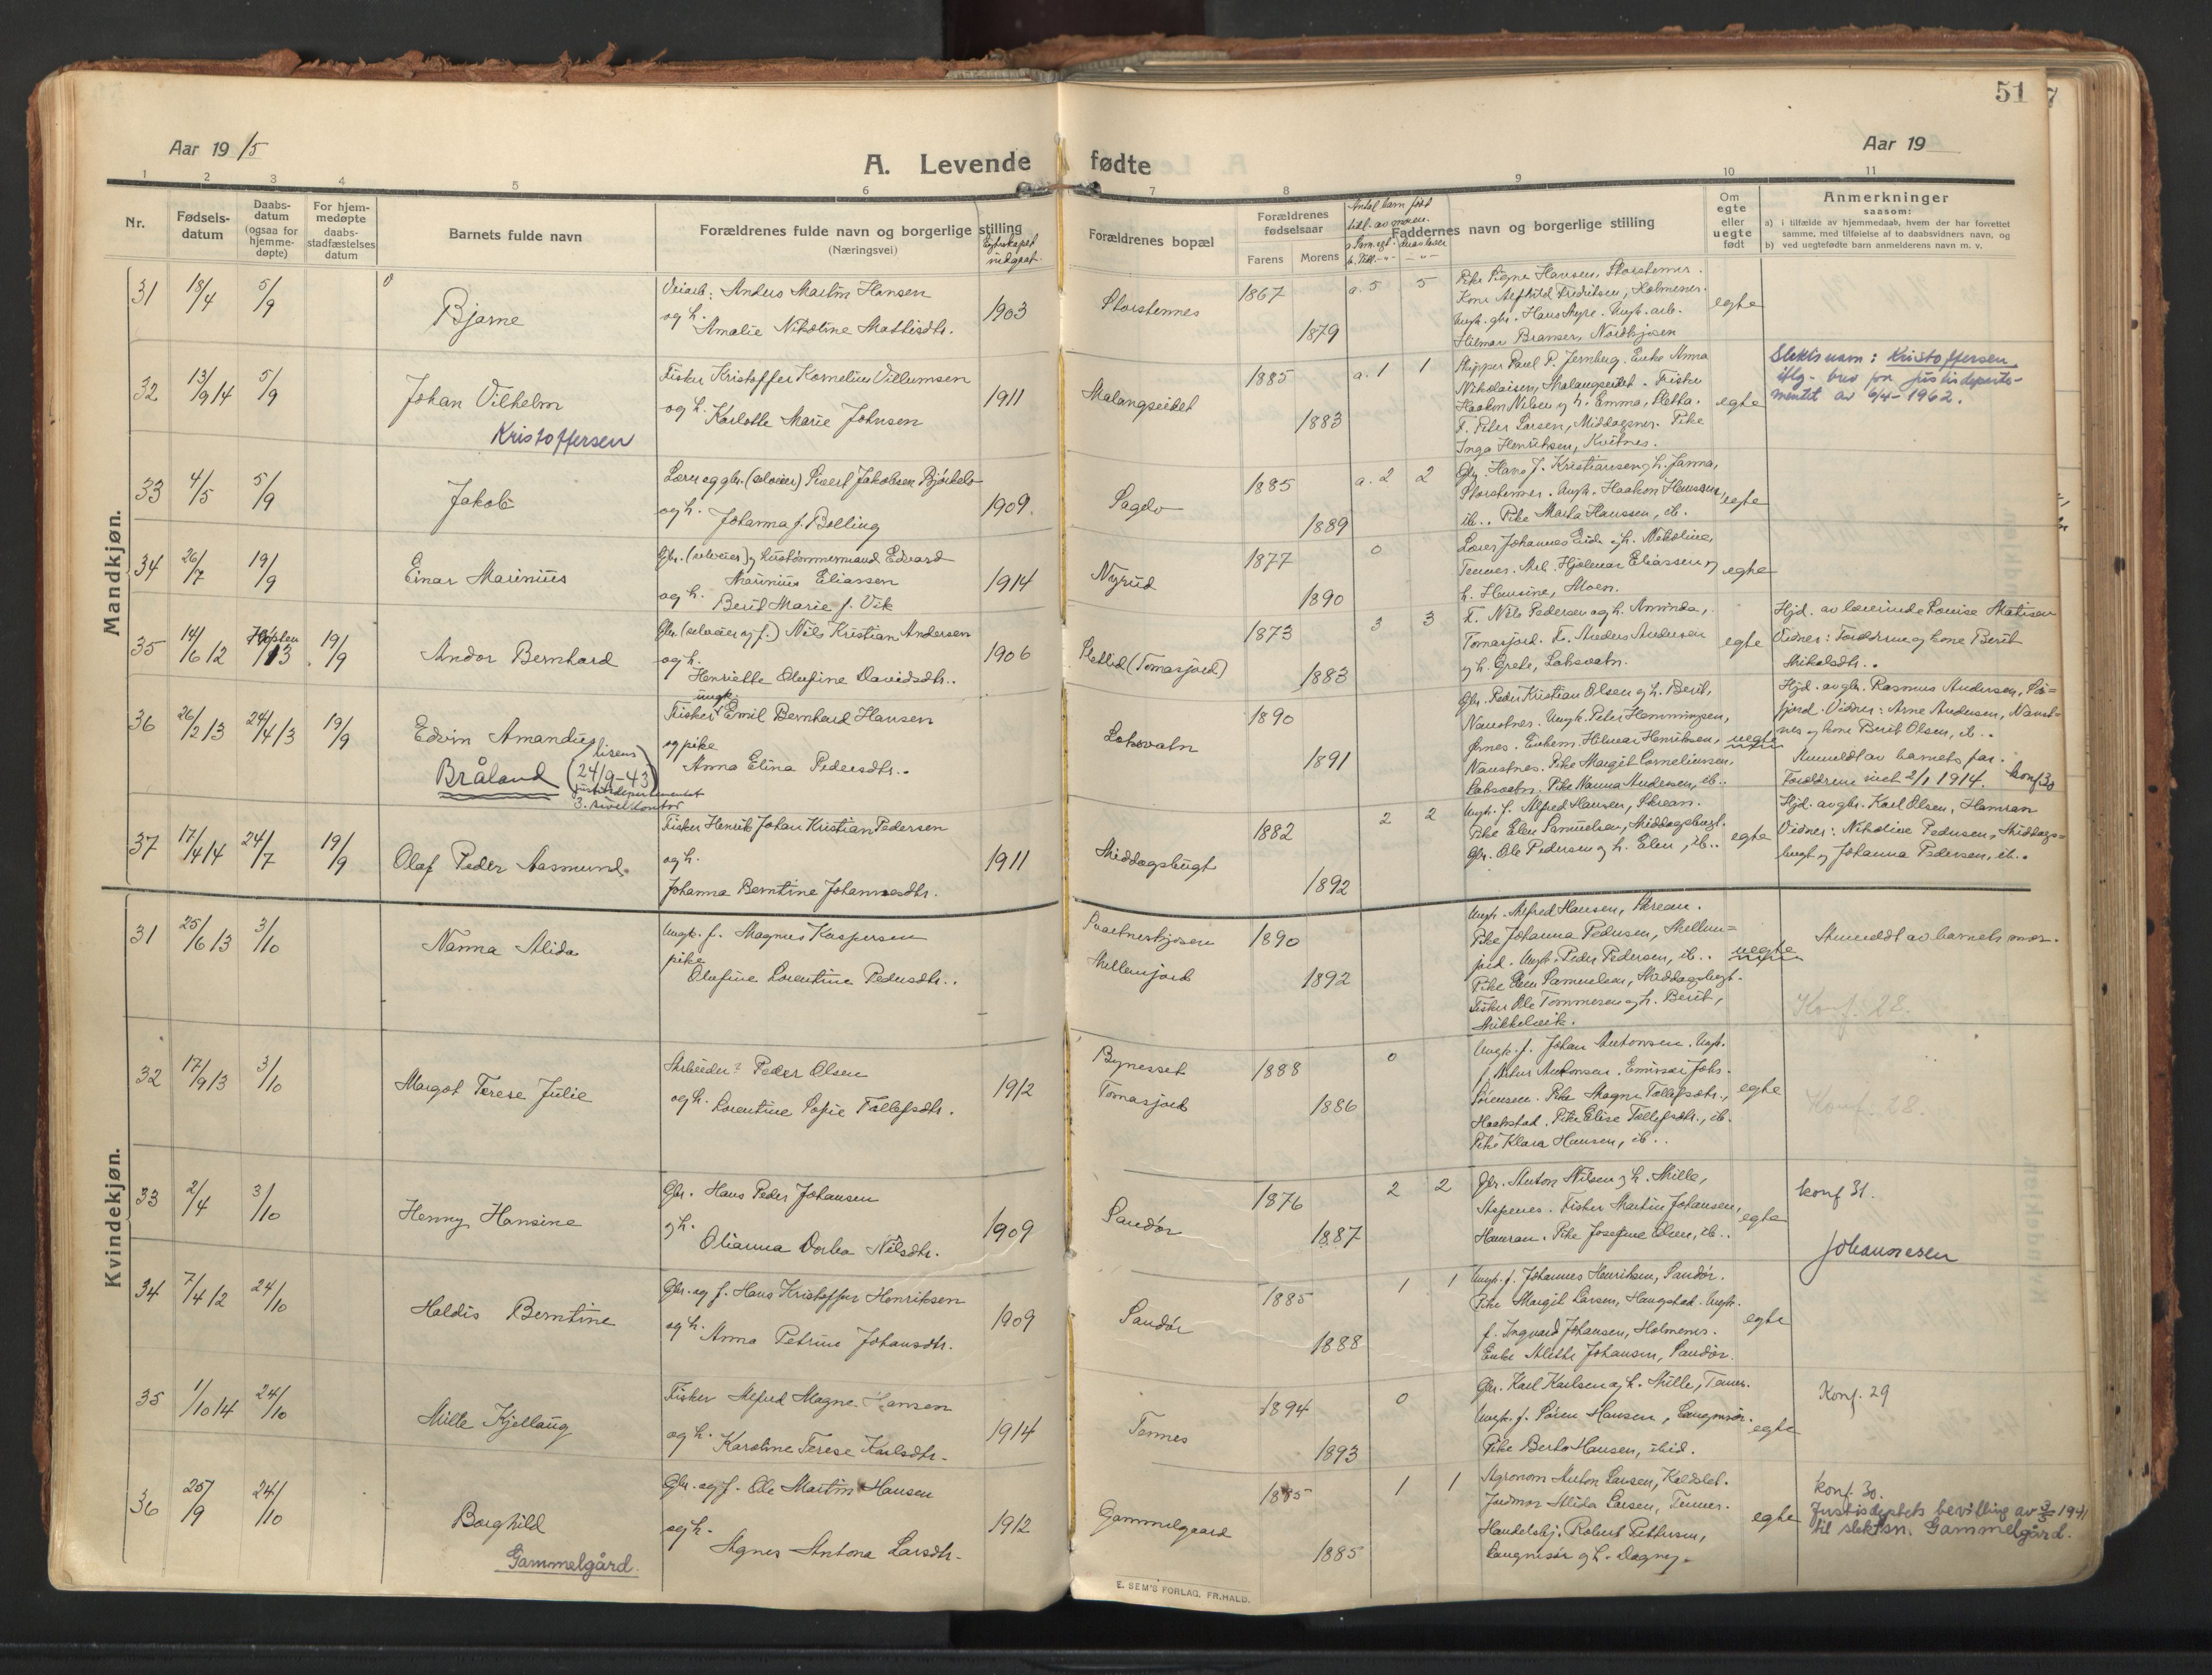 51
Aar 19 15
A. Levende fødte
Aar 19
1 2 3 4 5 6 7 8 9 10 11
Nr.
Fødsels-
datum
Daabs-
datum
(ogsaa for
hjemme-
døpte)
For hjem-
medøpte
daabs-
stadfæstelses
datum
Barnets fulde navn
Forældrenes fulde navn og borgerlige stilling
(Næringsvei)
Egteskapet
indgaat.
Forældrenes bopæl
Forældrenes
fødselsaar
Farens Morens
Antal barn født
Faddernes navn og borgerlige stilling
Om
egte
eller
uegte
født
Anmerkninger
saasom:
a) i tilfælde av hjemmedaab, hvem der har forrettet
samme, med tilføielse af to daabsvidners navn, og
b) ved uegtefødte barn anmelderens navn m. v.
Mandkjøn.
31 18/4 5/9
Bjarne
Veiarb. Anders Martin Hansen
og h.
Amalie Nikoline Mattisdtr.
1903
Storstennes
1867
1879
a. 5 5
Pike Signe Hansen, Storstennes.
Kone Alfhild Fredriksen, Holmenes.
Ungk. gbr. Hans Myre. Ungk. arb.
Hilmar Brænsen, Nordkjosen
egte
32 13/9 14 5/9
Johan Vilhelm
Kristoffersen
Fisker Kristoffer Kornelius Villumsen
og h.
Karlotte Marie Johnsen
1911
Malangseidet
1885
1883
a. 1 1
Skipper Paul P. Jernberg. Enke Anna
Nikolaisen, Malangseidet. Fisker
Haakon Nilsen og h. Emma, Sletta.
F. Peder Larsen, Middagsnes. Pike
Inga Henriksen, Kvitnes.
egte
Slektsnavn: Kristoffersen
iflg. brev fra Justisdeparte-
mentet av 6/4-1962.
33 4/5 5/9
Jakob
Lærer og gbr. (selveier) Sivert Jakobsen Bjørkelo
og h.
Johanna f. Bolling
1909.
Sagelv
1885
1889
a. 2 2
Gbr. Hans J. Kristiansen og h. Janna,
Storstennes. Ungk. Haakon Hanssen,
ib.. Pike Marta Hanssen, ib.
egte
34 26/7 19/9
Einar Marinius
Gbr. (selveier) og hustømmermand Edvard
Marinius Eliassen
og h.
Berit Marie f. Vik
1914
Nyrud
1877
1890
0
Lærer Johannes Eide og h. Nikoline,
Tennes. Arb. Hjalmar Eliassen og
h. Hansine, Moen.
egte
35 14/6 12 /13 19/9
Andor Bernhard
Gbr. (selveier og f.) Nils Kristian Andersen
og h.
Henriette Olufine Davidsdtr..
1906
Slettlid (Tomasjord)
1873
1883
3 3
F. Nils Pedersen og h. Aminda,
Tomasjord. F. Anders Andersen
og h. Grete, Laksvatn.
egte
Hjd. av lærerinde Louise Matisen
Vidner: Forældrene og kone Berit
Mikalsdtr..
36 26/2 13 24/4 13 19/9
Edvin Amandus
Bråland
(lisens
24/9-43)
justisdepartementet
3. sivilkontor
ungk.
Fisker Emil Bernhard Hansen
og pike
Anna Elina Pedersdtr..
Laksvatn
1890
1891
Gbr. Peder Kristian Olsen og h. Berit,
Naustnes. Ungk. Peter Hemmingsen,
Ørnes. Enkem. Hilmar Henriksen,
Naustnes. Pike Margit Corneliussen,
Laksvatn. Pike Nanna Andersen, ib..
uegte
Hjd. av gbr. Rasmus Andersen, Sø-
jord. Vidner: Arne Andersen, Naust-
nes og kone Berit Olsen, ib..
Anmeldt av barnets far.
Forældrene viet 2/1 1914. konf 30
37 17/4 14 24/7 19/9
Olaf Peder Aasmund.
Fisker Henrik Johan Kristian Pedersen
og h.
Johanna Berntine Johannesdtr.
1911
Middagsbugt
1882
1892
2 2
Ungk. f. Alfred Hansen, Skrean.
Pike Elen Samuelsen, Middagsbugt.
Gbr. Ole Pedersen og h. Elen, ib..
egte
Hjd. av gbr. Karl Olsen, Hamran
Vidner: Nikoline Pedersen, Middags-
bugt og Johanna Pedersen, ib..
Kvindekjøn.
31 25/6 13 3/10
Nanna Alida
Ungk. f. Magnus Kaspersen
pike
Olufine Lorentine Pedersdtr..
Svartneskjosen
Mellemjord
1890
1892
Ungk. Alfred Hansen, Skrean.
Pike Johanna Pedersen, Mellem-
jord. Ungk. Peder Pedersen, ib..
Pike Elen Samuelsen, Middagsbugt.
Fisker Ole Tommesen og h. Berit,
Mikkelvik.
uegte
Anmeldt av barnets mor.
Konf. 28.
32 17/9 13 3/10
Margot Terese Julie
Arbeider Peder Olsen
og h. Lorentine Sofie Tollefsdtr.
1912
Bynesset
Tomasjord
1888
1886
0
Ungk. f. Johan Antonsen. Ungk.
f. Artur Antonsen. Emissær Johs.
Sørensen. Pike Magna Tollefsdtr.,
Haakstad. Pike Elise Tollefsdtr., ib.
Pike Klara Hansen, ib..
egte
Konf. 28.
33 2/4 3/10
Henny Hansine
Gbr. Hans Peder Johansen
og h.
Olianna Dorthea Nilsdtr.
1909
Sandør
1876
1887
2 2
Gbr. Anton Nilsen og h. Mille,
Aspenes. Fisker Martin Johansen,
Hamran. Pike Josefine Olsen, ib..
egte
konf 31.
Johannesen
34 7/4 12 24/10
Haldis Berntine
Gbr. og f. Hans Kristoffer Henriksen
og h.
Anna Petrine Johansdtr.
1909
Sandør
1885
1888
1 1
Ungk. f. Johannes Henriksen, Sandør.
Pike Margit Larsen, Haugstad. Ungk.
f. Ingvard Johansen, Holmenes.
Enke Alethe Johansen, Sandør.
egte
35 1/10 14 24/10
Mille Kjellaug
Fisker Alfred Magne Hansen
og h. Karoline Terese Karlsdtr.
1914
Tennes
1894
1893
0
Gbr. Karl Karlsen og h. Mille, Tennes.
Ungk. f. Søren Hansen, Langnesør.
Pike Berta Hansen, ibid.
egte
Konf. 29
36 25/9 24/10
Borghild
Gammelgård.
Gbr. og f. Ole Martin Hansen
og h.
Agnes Antona Larsdtr.
1912
Gammelgaard
1885
1885
1 1
Agronom Anton Larsen, Kaldslet.
Jordmor Alida Larsen, Tennes.
Handelsbj. Robert Pettersen,
Langnesør og h. Dagny.
egte
konf. 30.
Justisdeptets bevilling av 3/5 1941
til slektsn. Gammelgård.
E. SEM'S FORLAG. FR.HALD.